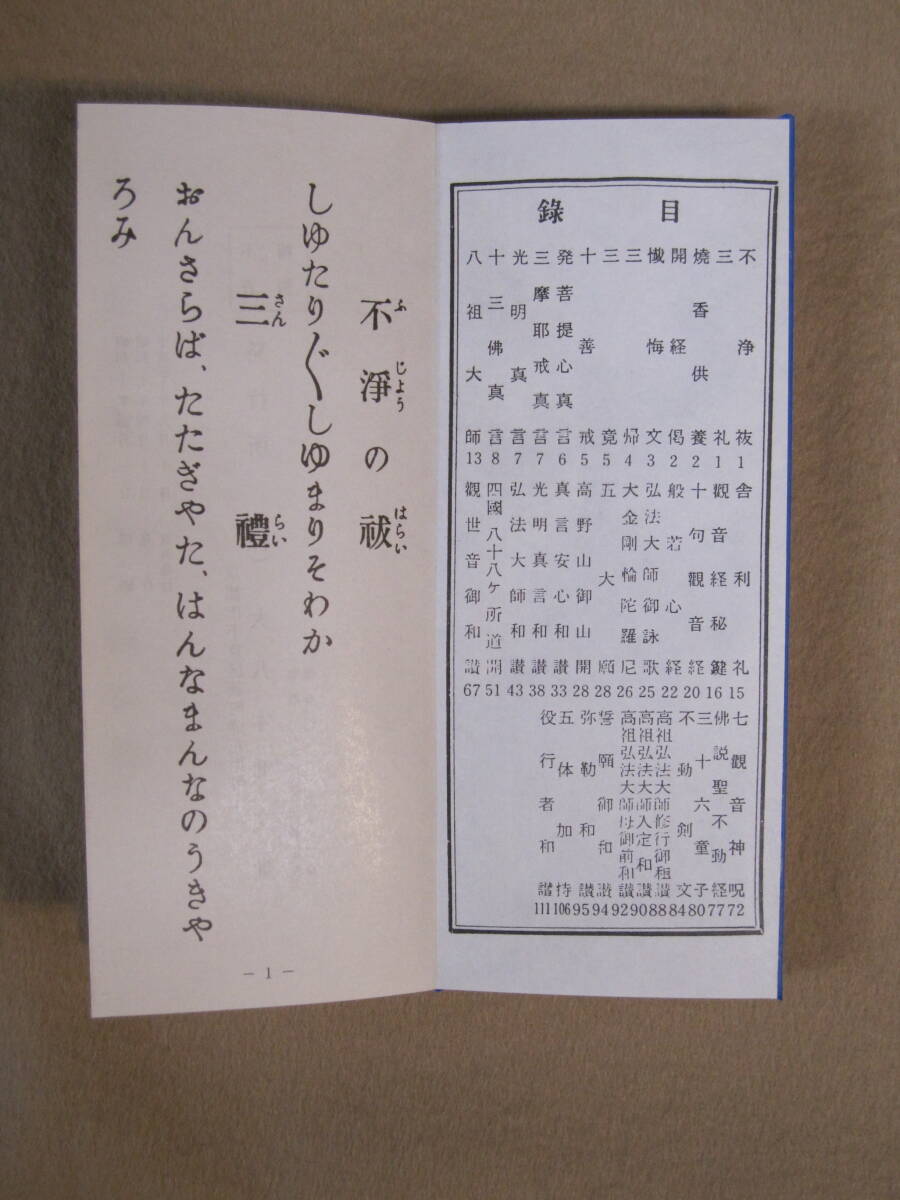 目錄
不浄祓1
三礼1
燒香供養2
開経偈2
懺悔文3
三帰4
三竟5
十善戒5
発菩提心真言6
三摩耶戒真言7
光明真言7
十三佛真言8
八祖大師13
舎利礼15
觀音経秘鍵16
十句觀音経20
般若心経22
弘法大師御詠歌25
大金剛輪陀羅尼26
五大願28
高野山御山開28
真言安心和讃33
光明真言和讃38
弘法大師和讃43
四國八十八ケ所道開51
觀世音御和讃67
七觀音神呪72
佛説聖不動経77
三十六童子80
不動剣文84
高祖弘法大師修行御和讃88
高祖弘法大師入定和讃90
高祖弘法大師母御前和讃92
誓願御和讃94
弥勒和讃95
五体加持106
役行者和讃111
不淨の祓
ふじょうはらい
しゆたり〳〵しゆまりそわか
三禮
さんらい
おんさらば、たたぎやた、はんなまんなのうきや
ろみ
－1－